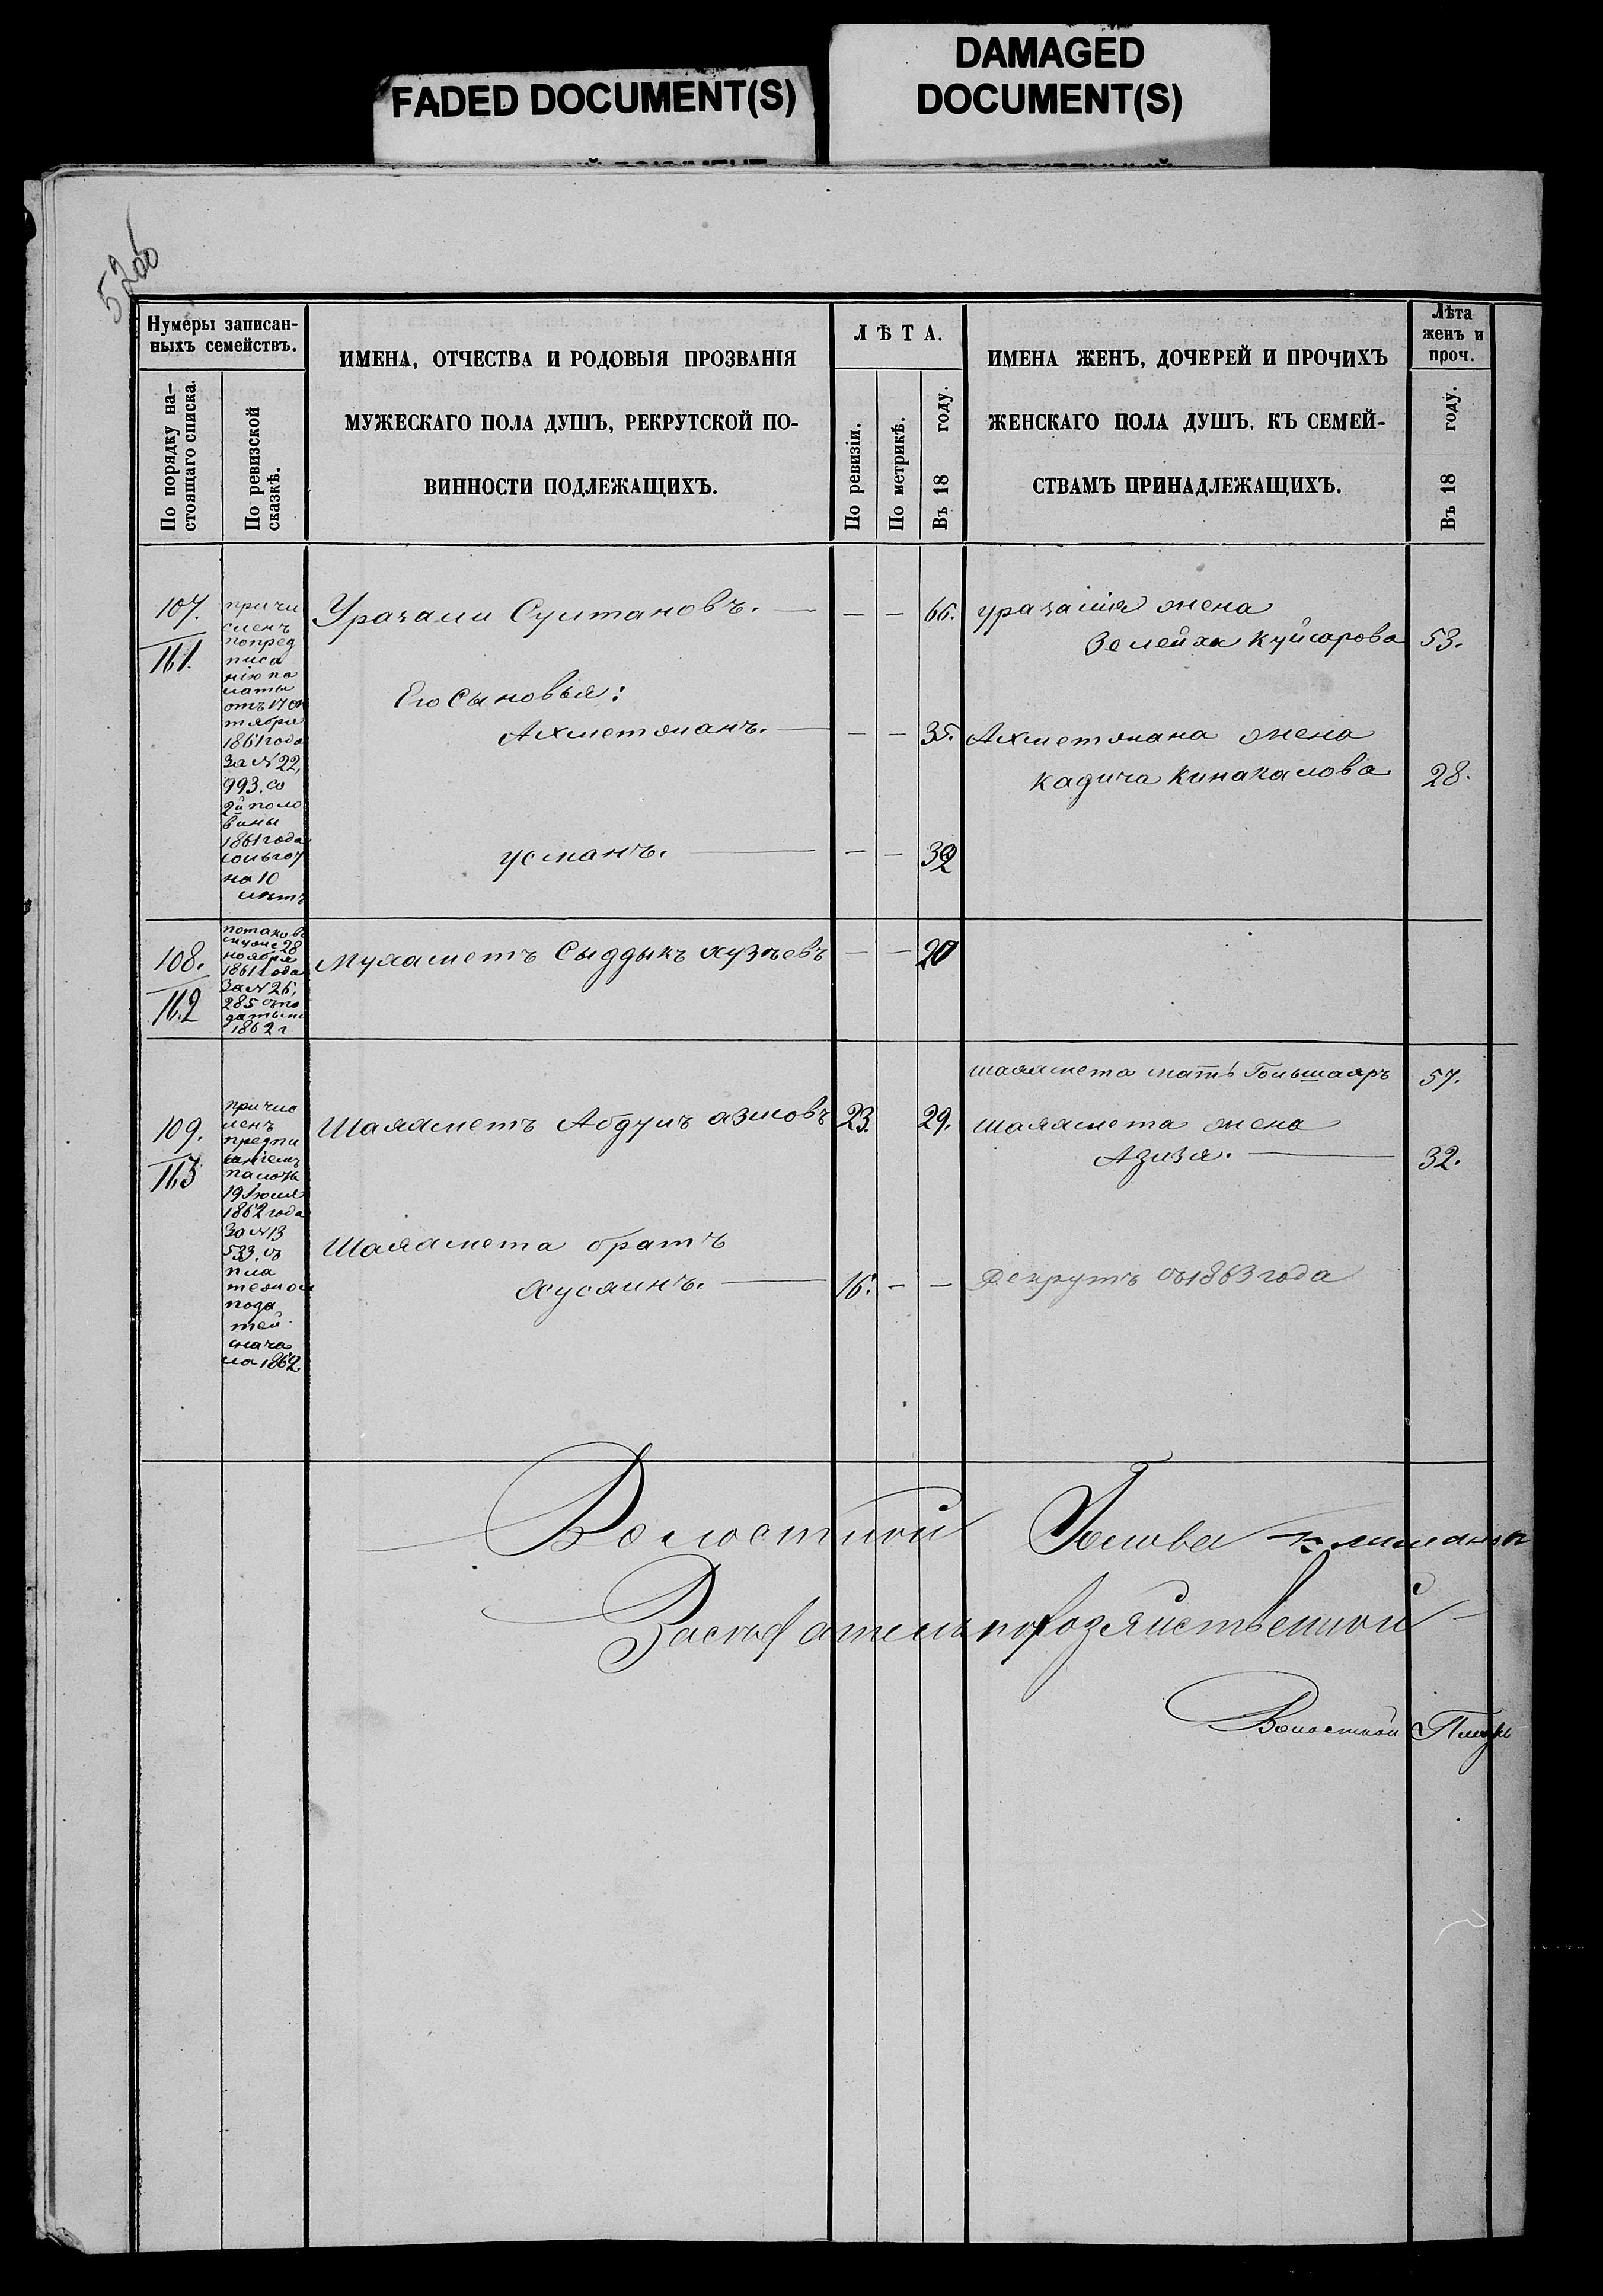 FADED DOCUMENT(S)
DAMAGED
DOCUMENT(S)
520б
Нумеры записан-
ныхъ семействъ.
По порядку на-
стоящаго списка.
По ревизской
сказкѣ.
ИМЕНА, ОТЧЕСТВА И РОДОВЫЯ ПРОЗВАНІЯ
МУЖЕСКАГО ПОЛА ДУШЪ, РЕКРУТСКОЙ ПО-
ВИННОСТИ ПОДЛЕЖАЩИХЪ.
ЛѢТА.
По ревизіи.
По метрикѣ.
Въ 18 году.
ИМЕНА ЖЕНЪ, ДОЧЕРЕЙ И ПРОЧИХЪ
ЖЕНСКАГО ПОЛА ДУШЪ, КЪ СЕМЕЙ-
СТВАМЪ ПРИНАДЛЕЖАЩИХЪ.
Лѣта
женъ и
проч.
Въ 18 году.
107.
161.
причи
сленъ
попред
писа
нію па
латы
отъ 17 ок
тября
1861 года
За № 22,
993. со
2й поло
вины
1861 года
сольгот
на 10
лѣтъ
Урагали Султановъ. — — — 66.
урагалия жена
Зелейха Куйсарова 53.
Его Сыновья:
Ахметжанъ. — — — 35.
Ахметжана жена
Кадича Кинакалова 28.
Усманъ. — — — 32
108.
162
потаков
муже 28
ноября
1861 года
За № 26,
285 в по
датьми
1862 г
Мухаметъ Сыддыкъ Яузѣевъ — — 20
109.
163
причис
ленъ
предпи
саніемъ
палаты
19 Июля
1862 года
За № 13
533. съ
пла
тежом
пода
тей
снача
ла 1862
шахамета мать Гольшаяръ 57.
Шахаметъ Абдулъ азмовъ 23. 29.
шахамета жена
Азиза. — 32.
Шахамета братъ
Хусаинъ. — 16. — —
Рекрутъ въ 1863 года
Волостной Голова
Засѣдатель по Хозяйственной
Волостной Писарь